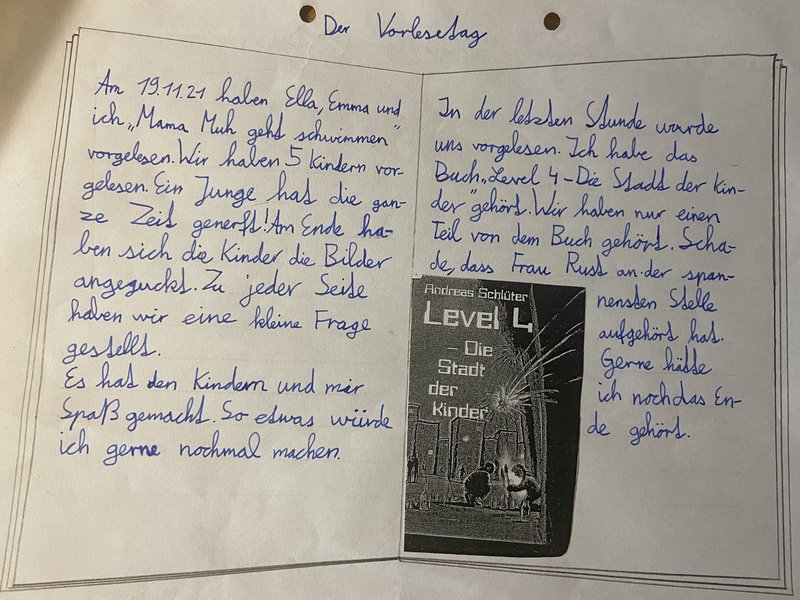 Der Vorlesetag
Am 19.11.21 haben Ella, Emma und
ich „Mama Muh geht schwimmen"
vorgelesen. Wir haben 5 Kindern vor-
gelesen. Ein Junge hat die gan-
ze Zeit generft! Am Ende ha-
ben sich die Kinder die Bilder
angeguckt. Zu jeder Seite
haben wir eine kleine Frage
gestellt.
Es hat den Kindern und mir
Spaß gemacht. So etwas würde
ich gerne nochmal machen.
In der letzten Stunde wurde
uns vorgelesen. Ich habe das
Buch „Level 4 - Die Stadt der Kin-
der" gehört. Wir haben nur einen
Teil von dem Buch gehört. Scha-
de, dass Frau Rust an der span-
nensten Stelle
aufgehört hat.
Gerne hätte
ich noch das En-
de gehört.
Andreas Schlüter
Level 4
- Die
Stadt
der
Kinder